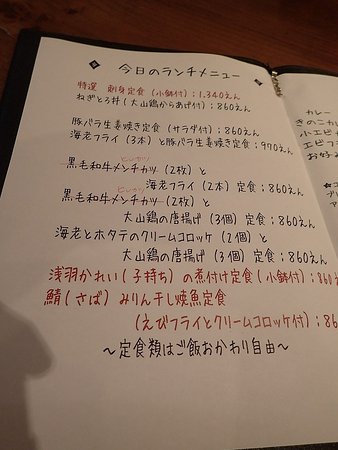 今日のランチメニュー
特選 刺身定食（小鉢付）；1,340えん
ねぎとろ丼（大山鶏からあげ付）；860えん
豚バラ生姜焼き定食（サラダ付）；860えん
海老フライ（3本）と豚バラ生姜焼き定食；970えん
ヒレカツ
黒毛和牛メンチカツ（2枚）と
海老フライ（2本）定食；860えん
ヒレカツ
黒毛和牛メンチカツ（2枚）と
大山鶏の唐揚げ（3個）定食；860えん
海老とホタテのクリームコロッケ（2個）と
大山鶏の唐揚げ（3個）定食；860えん
浅羽かれい（子持ち）の煮付け定食（小鉢付）；860
鯖（さば）みりん干し焼魚定食
（えびフライとクリームコロッケ付）；86
～定食類はご飯おかわり自由～
カレー
きのこカレ
小エビカ
エビフラ
お好み